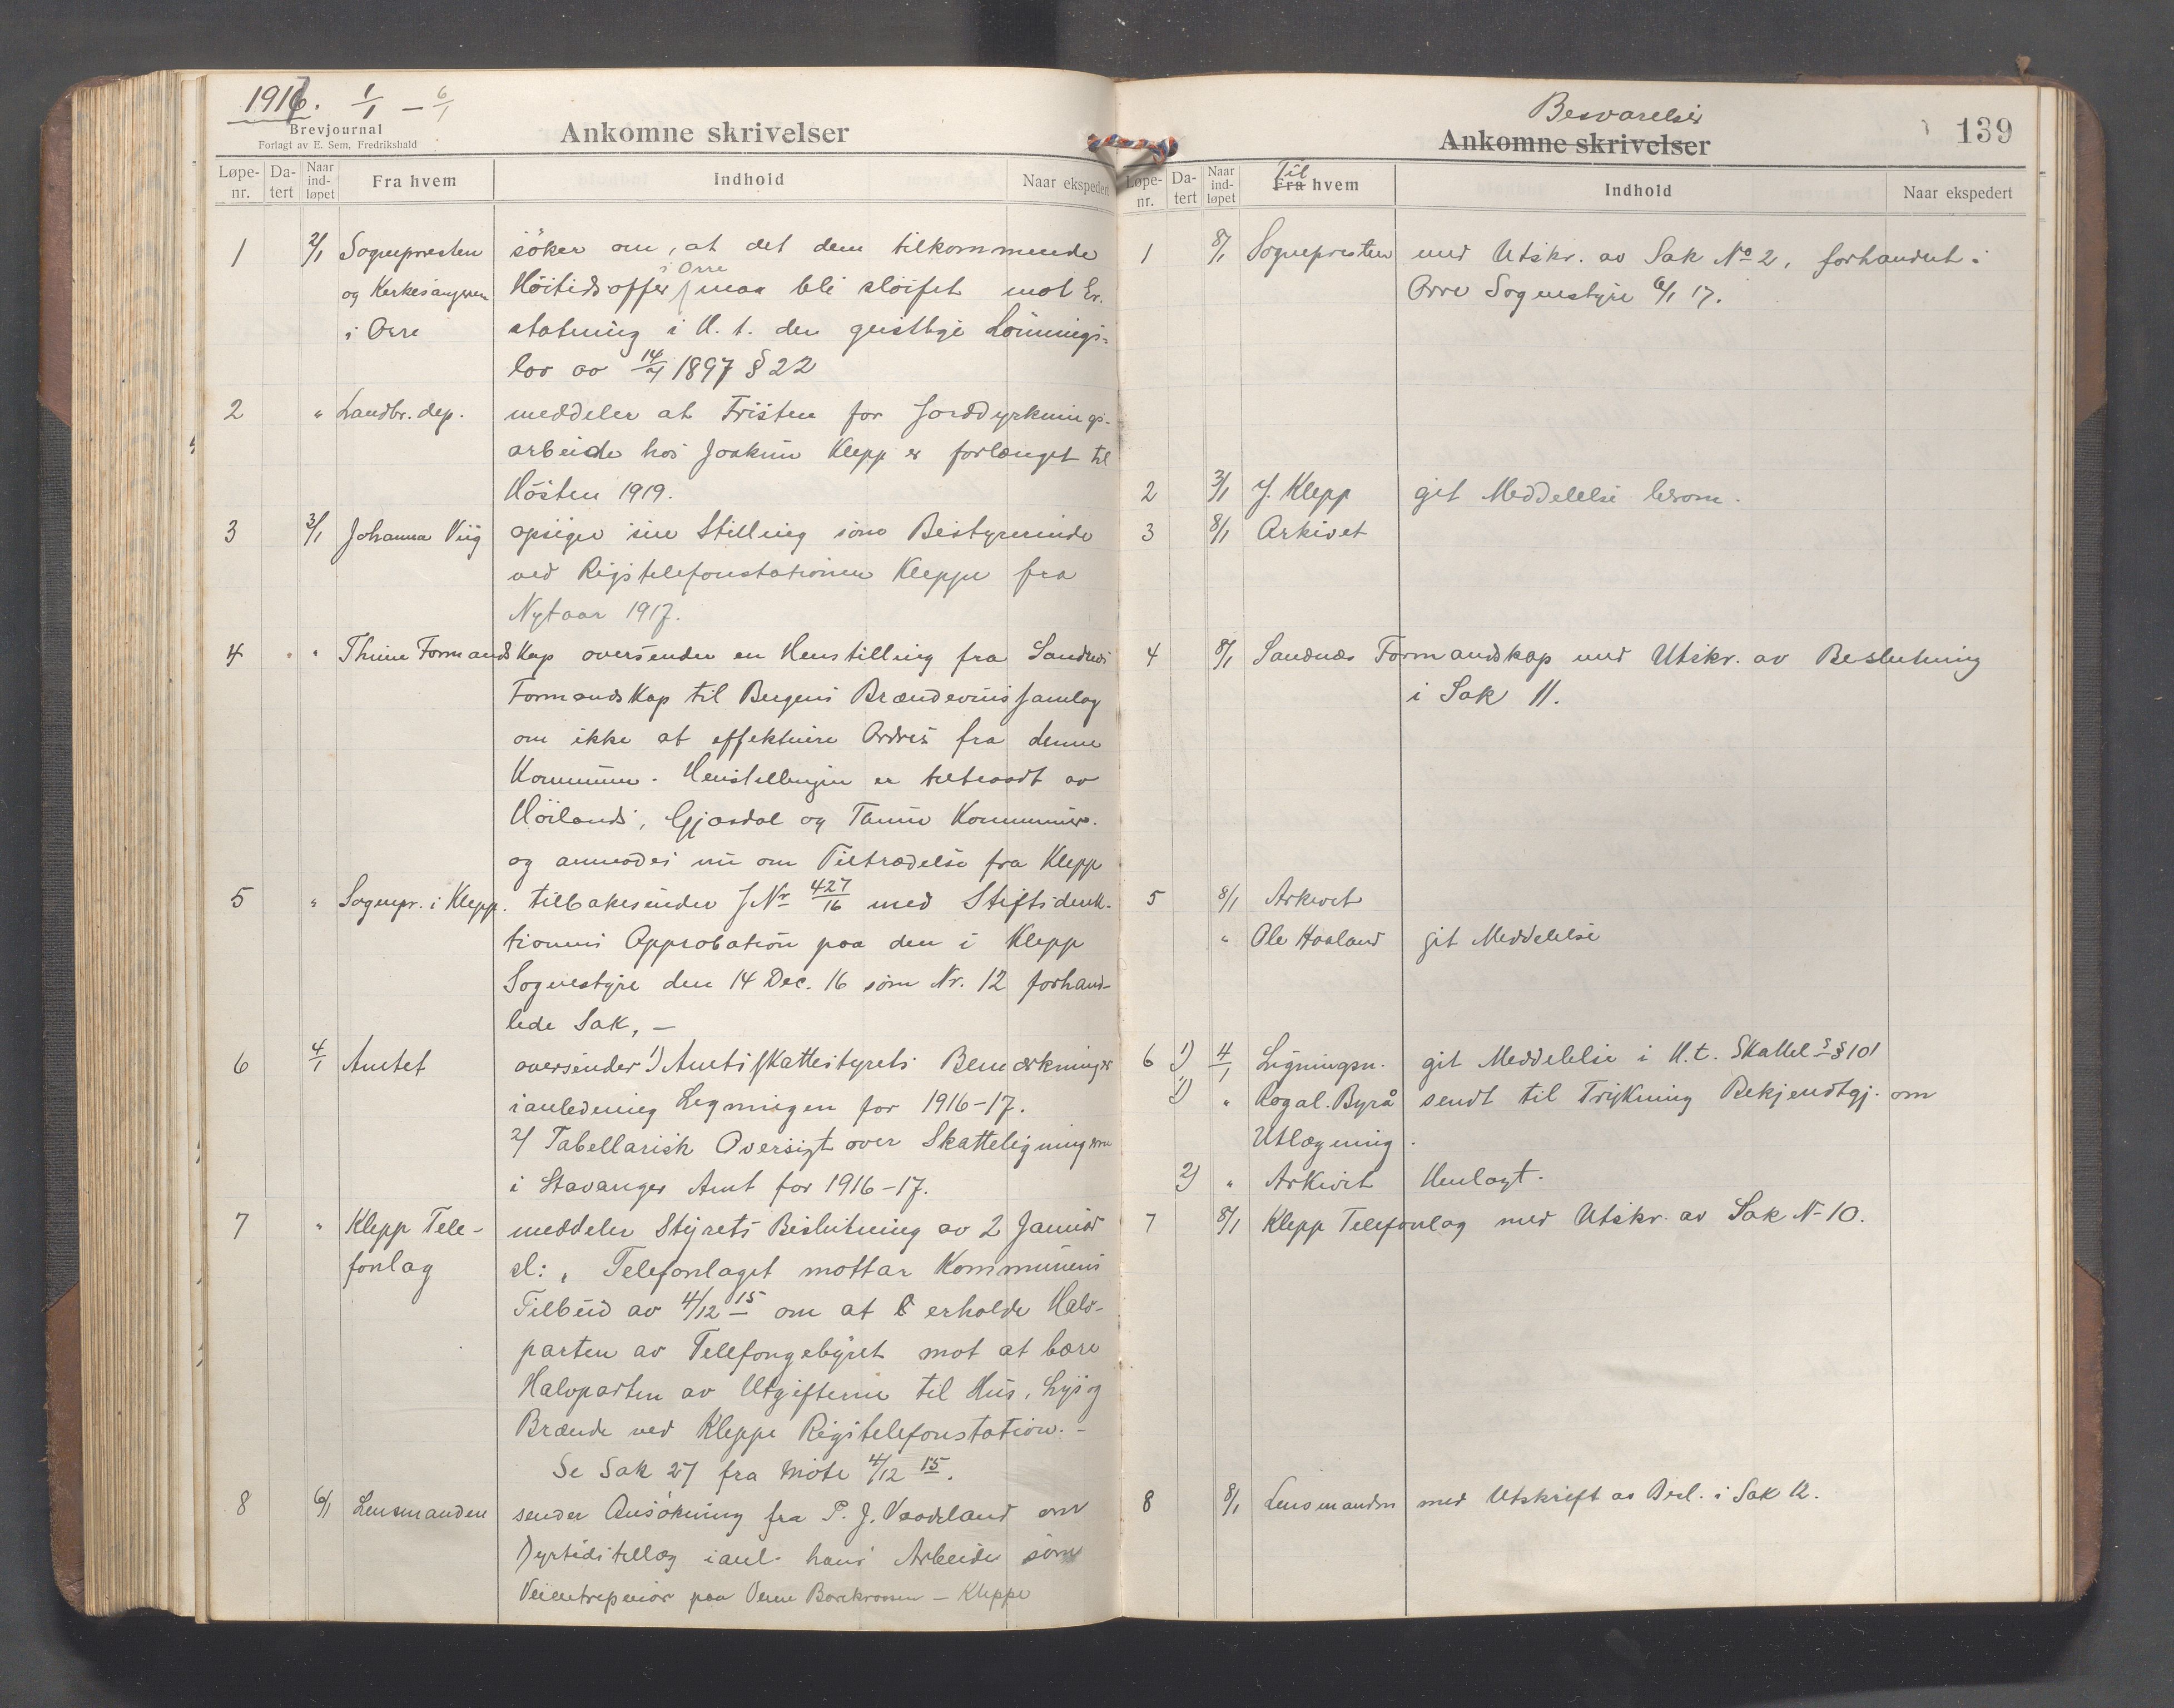 1917. 1/1 – 6/1
Brevjournal
Forlagt av E. Sem, Fredrikshald
Ankomne skrivelser
Løpe-nr. Da-tert Naar ind-løpet Fra hvem Indhold Naar ekspedert
1 2/1 Sognepresten søker om, at det dem tilkommende
og Kirkesangeren Höitidsoffer i Orre maa bli sløifet mot Er-
i Orre statning i H. t. den geistlige Lønnings-
lov av 14/7 1897 § 22
2 " Landbr. dep. meddeler at Fristen for Jorddyrknings-
arbeide hos Joakim Klepp er forlænget til
Høsten 1919.
3 3/1 Johanna Viig opsiger sin Stilling som Bestyrerinde
ved Rigstelefonstationen Kleppe fra
Nytaar 1917.
4 " " Thime Formandskap oversender en Henstilling fra Sandnes
Formandskap til Bergens Brændevinssamlag
om ikke at effektuere Ordres fra denne
Kommune. Henstillingen er tiltraadt av
Höilands, Gjæsdal og Thime Kommuner.
og anmodes nu om Tiltrædelse fra Klepp
5 " Sognepr. i Klepp. tilbakesender J.Nr 427/16 med Stiftsdirek-
tionens Approbation paa den i Klepp
Sognestyre den 14 Dec. 16 som Nr. 12 forhand-
lede Sak, —
6 4/1 Amtet oversender 1) Amtsskattestyrets Bemærkninger
i anledning Ligningen for 1916–17.
2) Tabellarisk Oversigt over Skatteligningerne
i Stavanger Amt for 1916–17.
7 " Klepp Tele- meddeler Styrets Beslutning av 2 Januar
fonlag sl: „ Telefonlaget mottar Kommunens
Tilbud av 4/12 15 om at erholde Halv-
parten av Telefongebyret mot at bære
Halvparten av Utgifterne til Hus, Lys og
Brænde ved Kleppe Rigstelefonstation. –
Se Sak 27 fra Møte 4/12 15.
8 6/1 Lensmanden sender Ansøkning fra P. J. Vaadeland om
Dyrtidstillæg i anl. hans Arbeide som
Veientreprenør paa Veien – Kleppe
Besvarelser
Ankomne skrivelser
139
Løpe-nr. Da-tert Naar ind-løpet Til Fra hvem Indhold Naar ekspedert
1 8/1 Sognepresten med Utskr. av Sak No 2, forhandlet i
Orre Sognestyre 6/1 17.
2 3/1 J. Klepp git Meddelelse herom.
3 8/1 Arkivet
4 8/1 Sandnes Formandskap med Utskr. av Beslutning
i Sak 11.
5 8/1 Arkivet
" Ole Haaland git Meddelelse
6 1) 4/1 Ligningsn. git Meddelelse i H.t. Skattel. § 101
1) " Rogal. Byrå sendt til Trykning Bekjendtgj. om
Utlægning.
2) " Arkivet Henlagt.
7 8/1 Klepp Telefonlag med Utskr. av Sak N- 10.
8 8/1 Lensmanden med Utskrift av Besl. i Sak 12.